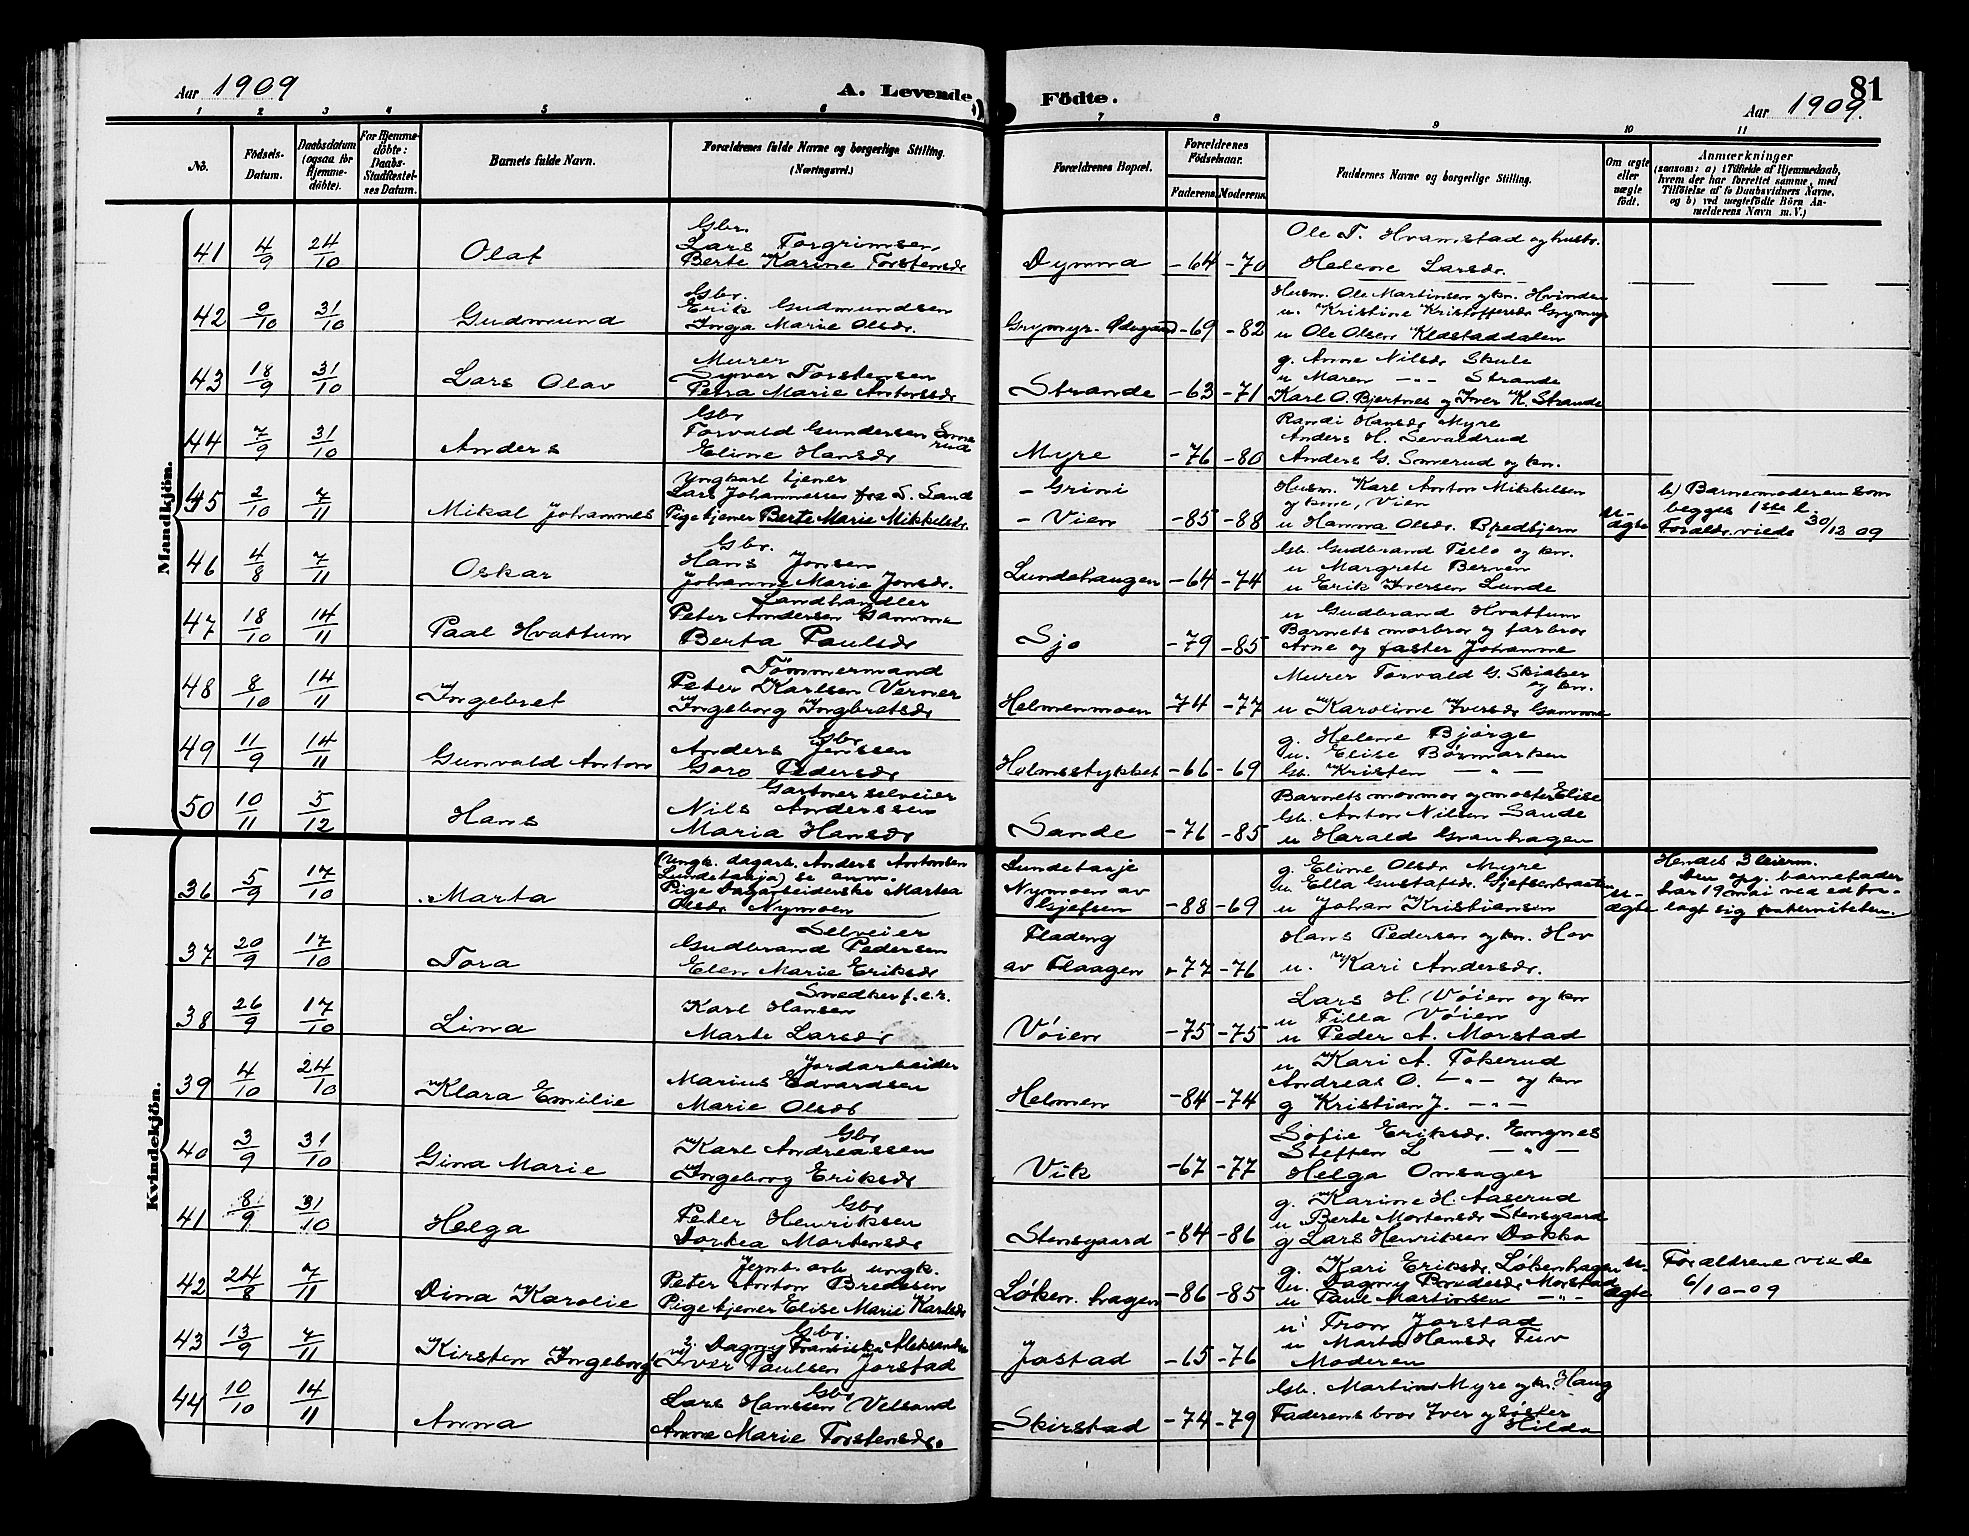 Aar 1909
A. Levende
Födte.
81
Aar 1909.
1 2 3 4 5 6 7 8 9 10 11
No.
Födsels-Datum.
Daabsdatum (ogsaa for Hjemme-döbte).
For Hjemme-döbte: Daabs-Stadfæstelses Datum.
Barnets fulde Navn.
Forældrenes fulde Navne og borgerlige Stilling.
(Næringsvei.)
Forældrenes Bopæl.
Forældrenes Födselsaar.
Faderens. Moderens.
Faddernes Navne og borgerlige Stilling.
Om ægte eller uægte födt.
Anmærkninger
(saasom: a) i Tilfælde af Hjemmedaab, hvem der har forrettet samme, med Tilföielse af to Daabsvidners Navne, og b) ved uægtefödte Börn Anmelderens Navn m. V.)
Mandkjön.
41 4/9 24/10 Olaf
Gbr.
Lars Torgrimsen
Berte Karine Torstensdr
Dynna -64 -70
Ole T. Hvamstad og hustr.
Helene Larsdr.
42 9/10 31/10 Gudmund
Gbr.
Erik Gudmundsen
Inga Marie Olsdr.
Grymyr -69 -82
Husm. Ole Martinsen og kn. Hvinden
u. Kristine Kristoffersdr Grymyr
u Ole Olsen Klæstaddalen
43 18/9 31/10 Lars Olav
Murer
Syver Torstensen
Petra Marie Antonsdr
Strande -63 -71
g. Anne Nilsdr Skule
u Maren -"- Strande
Karl O. Bjertnes og Iver K. Strande
44 7/9 31/10 Anders
Gbr
Torvald Gundersen Smerud
Eline Hansdr
Myre -76 -80
Randi Hansdr Myre
Anders H. Sevaldrud
Anders G. Smerud og kn.
45 2/10 7/11 Mikal Johannes
Ungkarl tjener
Lars Johannessen fra S. Sand
Pige tjener Berte Marie Mikkelsdr
- Grini
- Vien -85 -88
Husm. Karl Anton Mikkelsen
og kone, Vien
u Hanna Olsdr. Bredbjern
u-ægte
b) Barnemoderen som
begges 1ste l.
Foræld. viede 30/12 09
46 4/8 7/11 Oskar
Gbr.
Hans Jonsen
Johanne Marie Jonsdr.
Lundehaugen -64 -74
Gb. Gudbrand Teslo og kn.
u Margrete Bernen
u Erik Iversen Lunde
47 18/10 14/11 Paal Hvattum
Landhandler
Peter Andersen Gamme
Berta Paulsdr
Sjo -79 -85
u Gudbrand Hvattum
Barnets morbror og farbror
Arne og faster Johanne
48 8/10 14/11 Ingebret
Tømmermand
Peter Karlsen Verner
Ingeborg Ingbretsdr
Helmenmoen -74 -77
Murer Torvald G. Skiaker
og kn.
u Karoline Iversdr Gamme
49 11/9 14/11 Gunvald Anton
Gbr
Anders Jenssen
Goro Pedersdr
Helmsstykket -66 -69
g. Helene Bjørge
u. Elise Børmarken
Gb. Kristen -"-
50 10/11 5/12 Hans
Gartner selveier
Nils Anderssen
Maria Hansdr
Sande -76 -85
Barnets mormor og moster Elise
Gb. Anton Nilsen Sande
u Harald Granhagen
Kvindekjön.
36 5/9 17/10 Marta
(Ungk. dagarb. Anders Antonsen
Lundetarja) se anm.
Pige Dagarbeiderske Martea
Olsdr Nymoen
Lundetarje
Nymoen av
Gjefsen -88 -69
g. Eline Olsdr Myre
u Ella Gustafsdr. Gjefsenbraaten
u Johan Kristiansen
u-ægte
Hendes 3 leierm.
Den opg. barnefader
har 19 mai ved ed fra-
lagt sig paterniteten.
37 20/9 17/10 Tora
Selveier
Gudbrand Pedersen
Elen Marie Eriksdr
Fladeng
av Flaagen -77 -76
Hans Pedersen og kn. Hov
u. Kari Andersdr.
38 26/9 17/10 Lina
Smedker f. e. r.
Karl Hansen
Marte Larsdr
Vøien -75 -75
Lars H. Vøien og kn
u Tilla Vøien
u Peder A. Morstad
39 4/10 24/10 Klara Emilie
Jordarbeider
Marius Edvardsen
Marie Olsdr
Helmen -84 -74
u Kari A. Tokerud
Andreas O. -"- og kn
g Kristian J. -"-
40 3/9 31/10 Gina Marie
Gbr
Karl Andreassen
Ingeborg Eriksdr
Vik -67 -77
Sofie Eriksdr. Engnes
Steffen L -"-
Helga Onsager
41 8/9 31/10 Helga
Gbr
Peter Henriksen
Dortea Mortensdr
Stensgaard -84 -86
g. Karine H. Aaserud
u Berte Mortensdr Stensgaard
g Lars Henriksen Dokka
42 24/8 7/11 Dina Karolie
Jernb. arb ungk.
Peter Anton Bredesen
Pige tjener Elise Marie Karlsdr
Løken. hagen -86 -85
g. Kari Eriksdr. Løkenhagen
u. Dagny Morstad
u Paul Martinsen -"-
u-ægte
Forældrene viede
6/10-09
43 13/9 7/11 Kirsten Ingeborg
Gbr.
Dagny Fransiska Aleksandra
Iver Paulsen Jorstad
Jostad -65 -76
u. Tron Jorstad
u Marta Hansdr Tuv
Moderen
44 10/10 14/11 Anna
Gbr
Lars Hanssen Velsand
Anne Marie Torstensdr.
Skirstad -74 -79
Gb. Martin Myre og kn. Haug
Faderens bror Iver og søster
Hilda